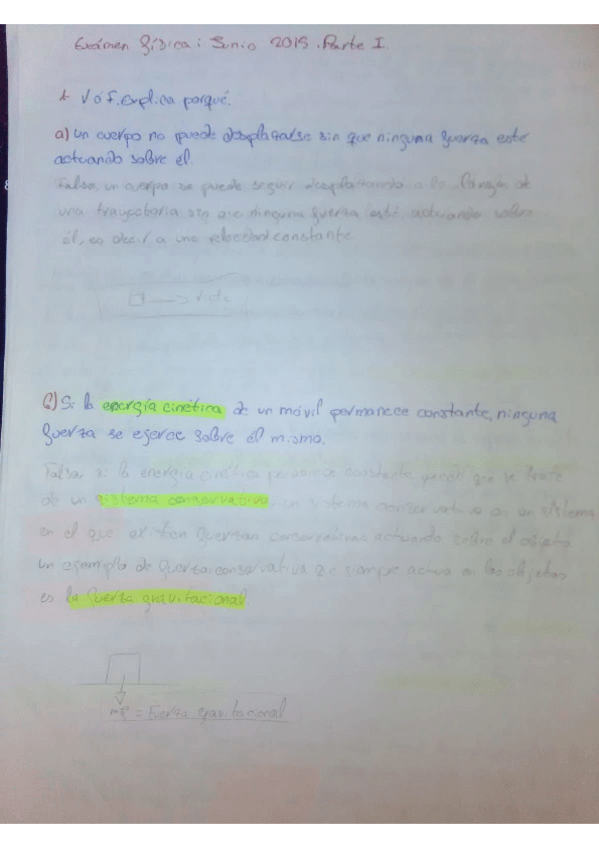 Exámen física: Junio 2015. Parte I.
1- V ó F. explica porqué.
a) un cuerpo no puede desplazarse sin que ninguna fuerza este
actuando sobre él.
Falsa, un cuerpo se puede seguir desplazando a lo largo de
una trayectoria sin que ninguna fuerza esté actuando sobre
él, es decir a una velocidad constante
→ v cte
b) Si la energía cinética de un móvil permanece constante, ninguna
fuerza se ejerce sobre él mismo.
Falsa, si la energía cinética permanece constante puede que se trate
de un sistema conservativo, un sistema conservativo es un sistema
en el que existen fuerzas conservativas actuando sobre el objeto
un ejemplo de fuerza conservativa que siempre actua en los objetos
es la fuerza gravitacional.
= Fuerza gravitacional